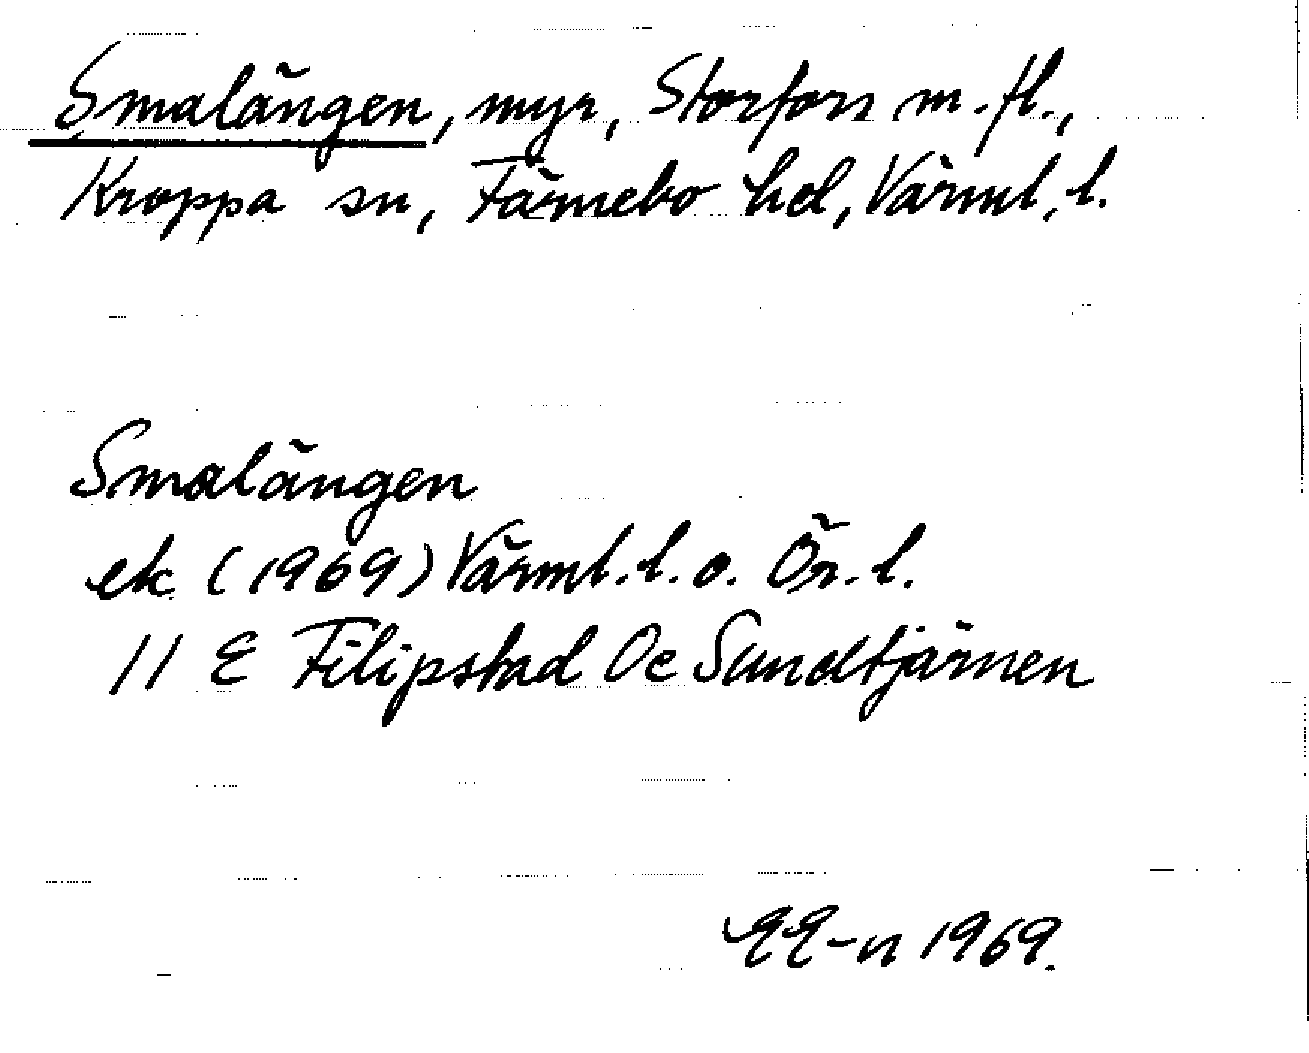 Smalängen, myr, Storfors m.fl.,
Kroppa sn, Färnebo hd, Värml.l.
Smalängen
ek (1969) Värml.l. o. Ör.l.
11 E Filipstad Oe Sundtjärnen
1969.